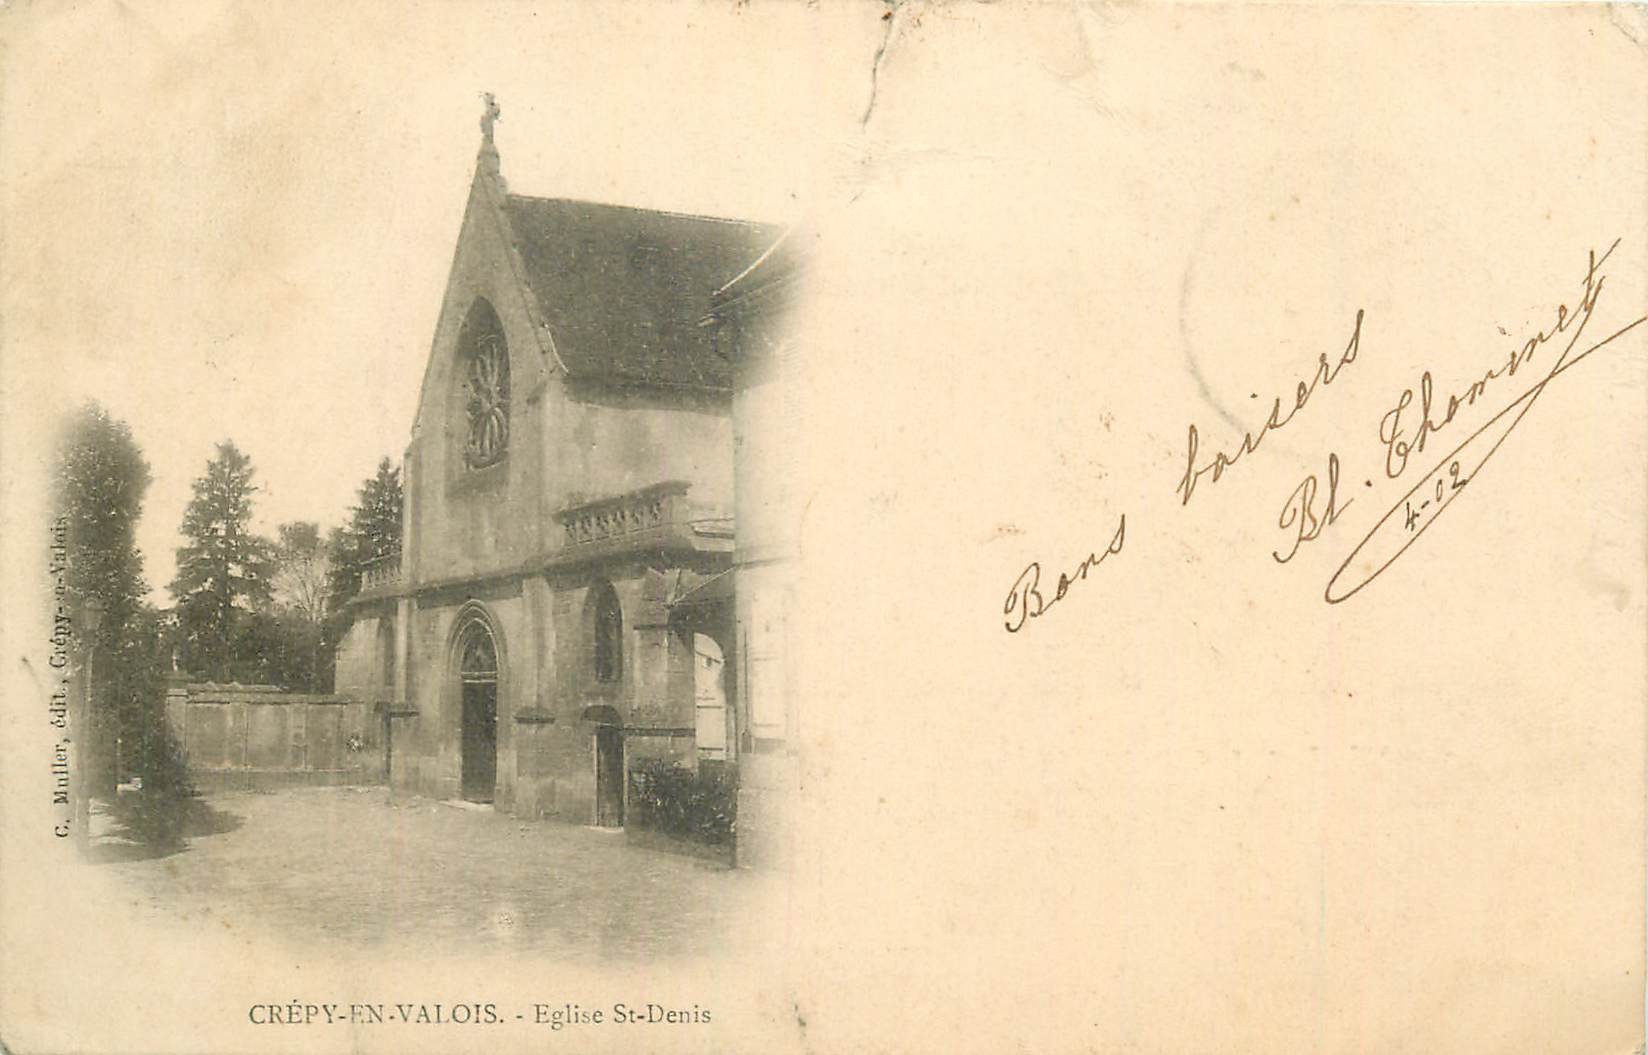 C. Muller, édit., Crépy-en-Valois
Bons baisers
Bl. Thominet
4-02
CRÉPY-EN-VALOIS. - Eglise St-Denis